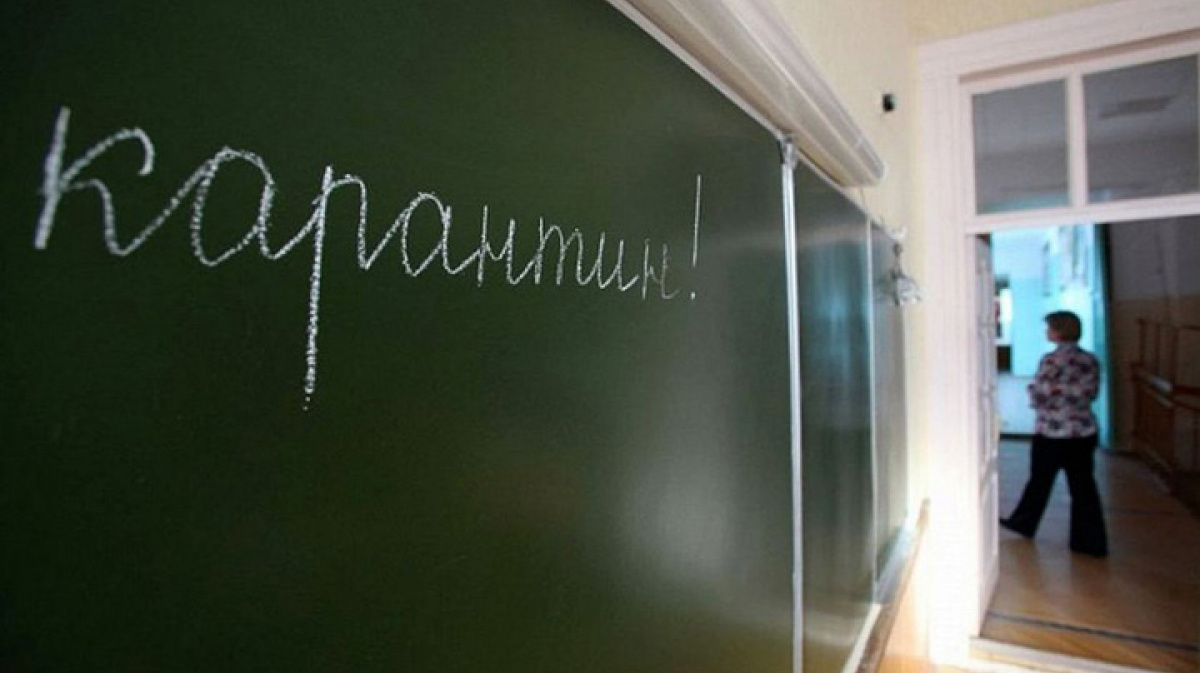 карантин!